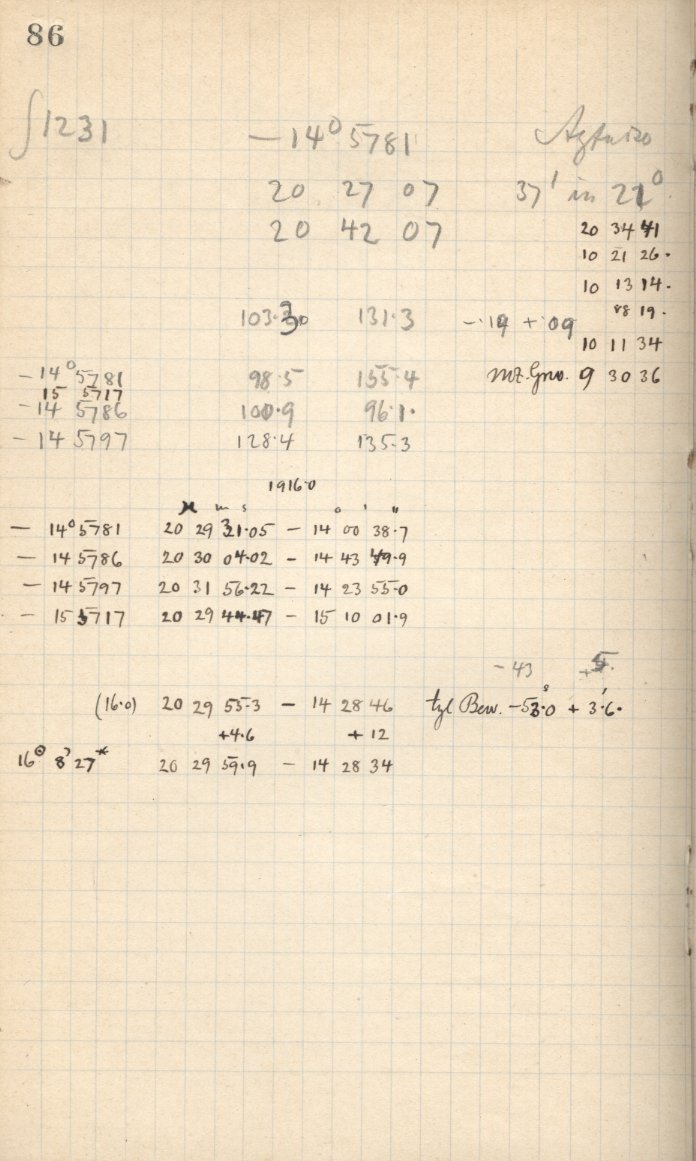 86
∫1231 −14° 5781
20 27 07 37' in 21°
20 42 07 20 34 41
10 21 26.
10 13 14.
103.3 131.3 −.19 +.09 88 19.
10 11 34
−14° 5781 98.5 155.4 mZ. Grw. 9 30 36
15 5717
−14 5786 100.9 96.1.
−14 5797 128.4 135.3
1916.0
H m s ° ' "
− 14° 5781 20 29 31.05 − 14 00 38.7
− 14 5786 20 30 04.02 − 14 43 49.9
− 14 5797 20 31 56.22 − 14 23 55.0
− 15 5717 20 29 44.47 − 15 10 01.9
−43 +5.
(16.0) 20 29 55.3 − 14 28 46 tgl Bew. −53.0ˢ + 3.'6.
+4.6 + 12
16° 8' 27* 20 29 59.9 − 14 28 34